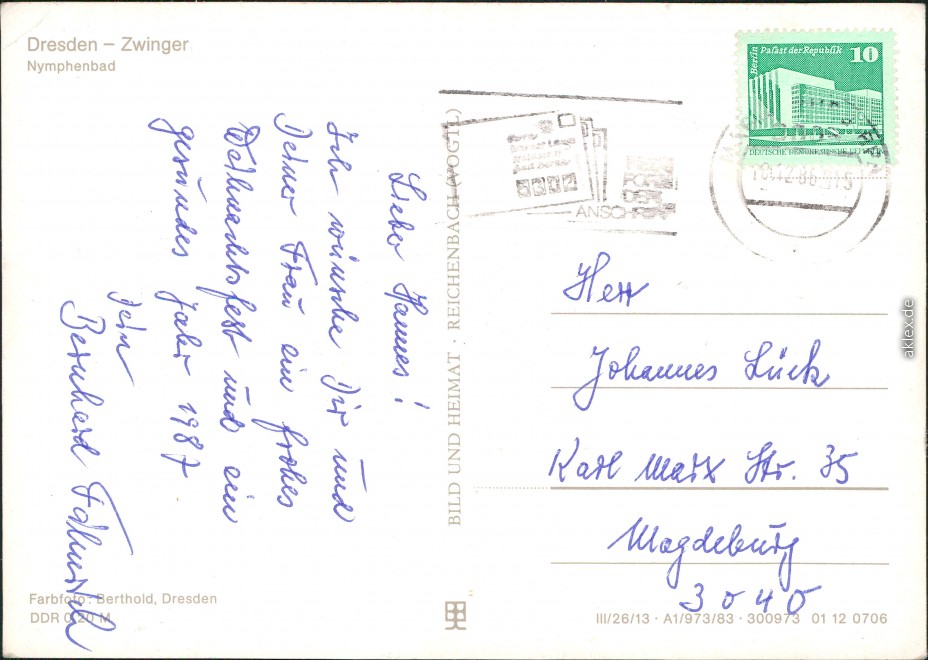 Dresden – Zwinger
Nymphenbad
Lieber Hannes!
Ich wünsche Dir und
Deiner Frau ein frohes
Weihnachtsfest und ein
gesundes Jahr 1987
Dein
Bernhard
BILD UND HEIMAT · REICHENBACH (VOGTL)
Berlin Palast der Republik 10
DEUTSCHE DEMOKRATISCHE REPUBLIK
ANSCHRIFT
10.12.86
Herr
Johannes Lück
Karl Marx Str. 35
Magdeburg
3040
Farbfoto: Berthold, Dresden
DDR 0,20 M
III/26/13 · A1/973/83 · 300973 01 12 0706
aklex.de